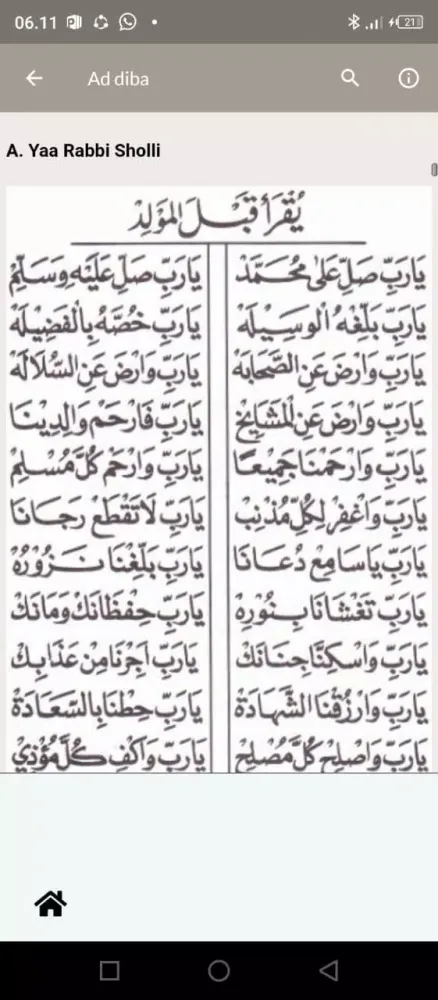 06.11
21
Ad diba
A. Yaa Rabbi Sholli
يُقْرَأُ قَبْلَ الْمَوْلِدْ
يَارَبِّ صَلِّ عَلَى مُحَمَّدْ يَارَبِّ صَلِّ عَلَيْهِ وَسَلِّمْ
يَارَبِّ بَلِّغْهُ الْوَسِيْلَهْ يَارَبِّ خُصَّهُ بِالْفَضِيْلَهْ
يَارَبِّ وَارْضَ عَنِ الصَّحَابَهْ يَارَبِّ وَارْضَ عَنِ السُّلَالَهْ
يَارَبِّ وَارْضَ عَنِ الْمَشَايِخْ يَارَبِّ فَارْحَمْ وَالِدِيْنَا
يَارَبِّ وَارْحَمْنَا جَمِيْعًا يَارَبِّ وَارْحَمْ كُلَّ مُسْلِمْ
يَارَبِّ وَاغْفِرْ لِكُلِّ مُذْنِبْ يَارَبِّ لَا تَقْطَعْ رَجَانَا
يَارَبِّ يَاسَامِعْ دُعَانَا يَارَبِّ بَلِّغْنَا نَزُوْرُهْ
يَارَبِّ تَغْشَانَا بِنُوْرِهْ يَارَبِّ حِفْظَانَكْ وَمَانَكْ
يَارَبِّ وَاسْكِنَّا جِنَانَكْ يَارَبِّ اَجِرْنَا مِنْ عَذَابِكْ
يَارَبِّ وَارْزُقْنَا الشَّهَادَةْ يَارَبِّ حِطْنَا بِالسَّعَادَةْ
يَارَبِّ وَاصْلِحْ كُلَّ مُصْلِحْ يَارَبِّ وَاكْفِ كُلَّ مُؤْذِيْ